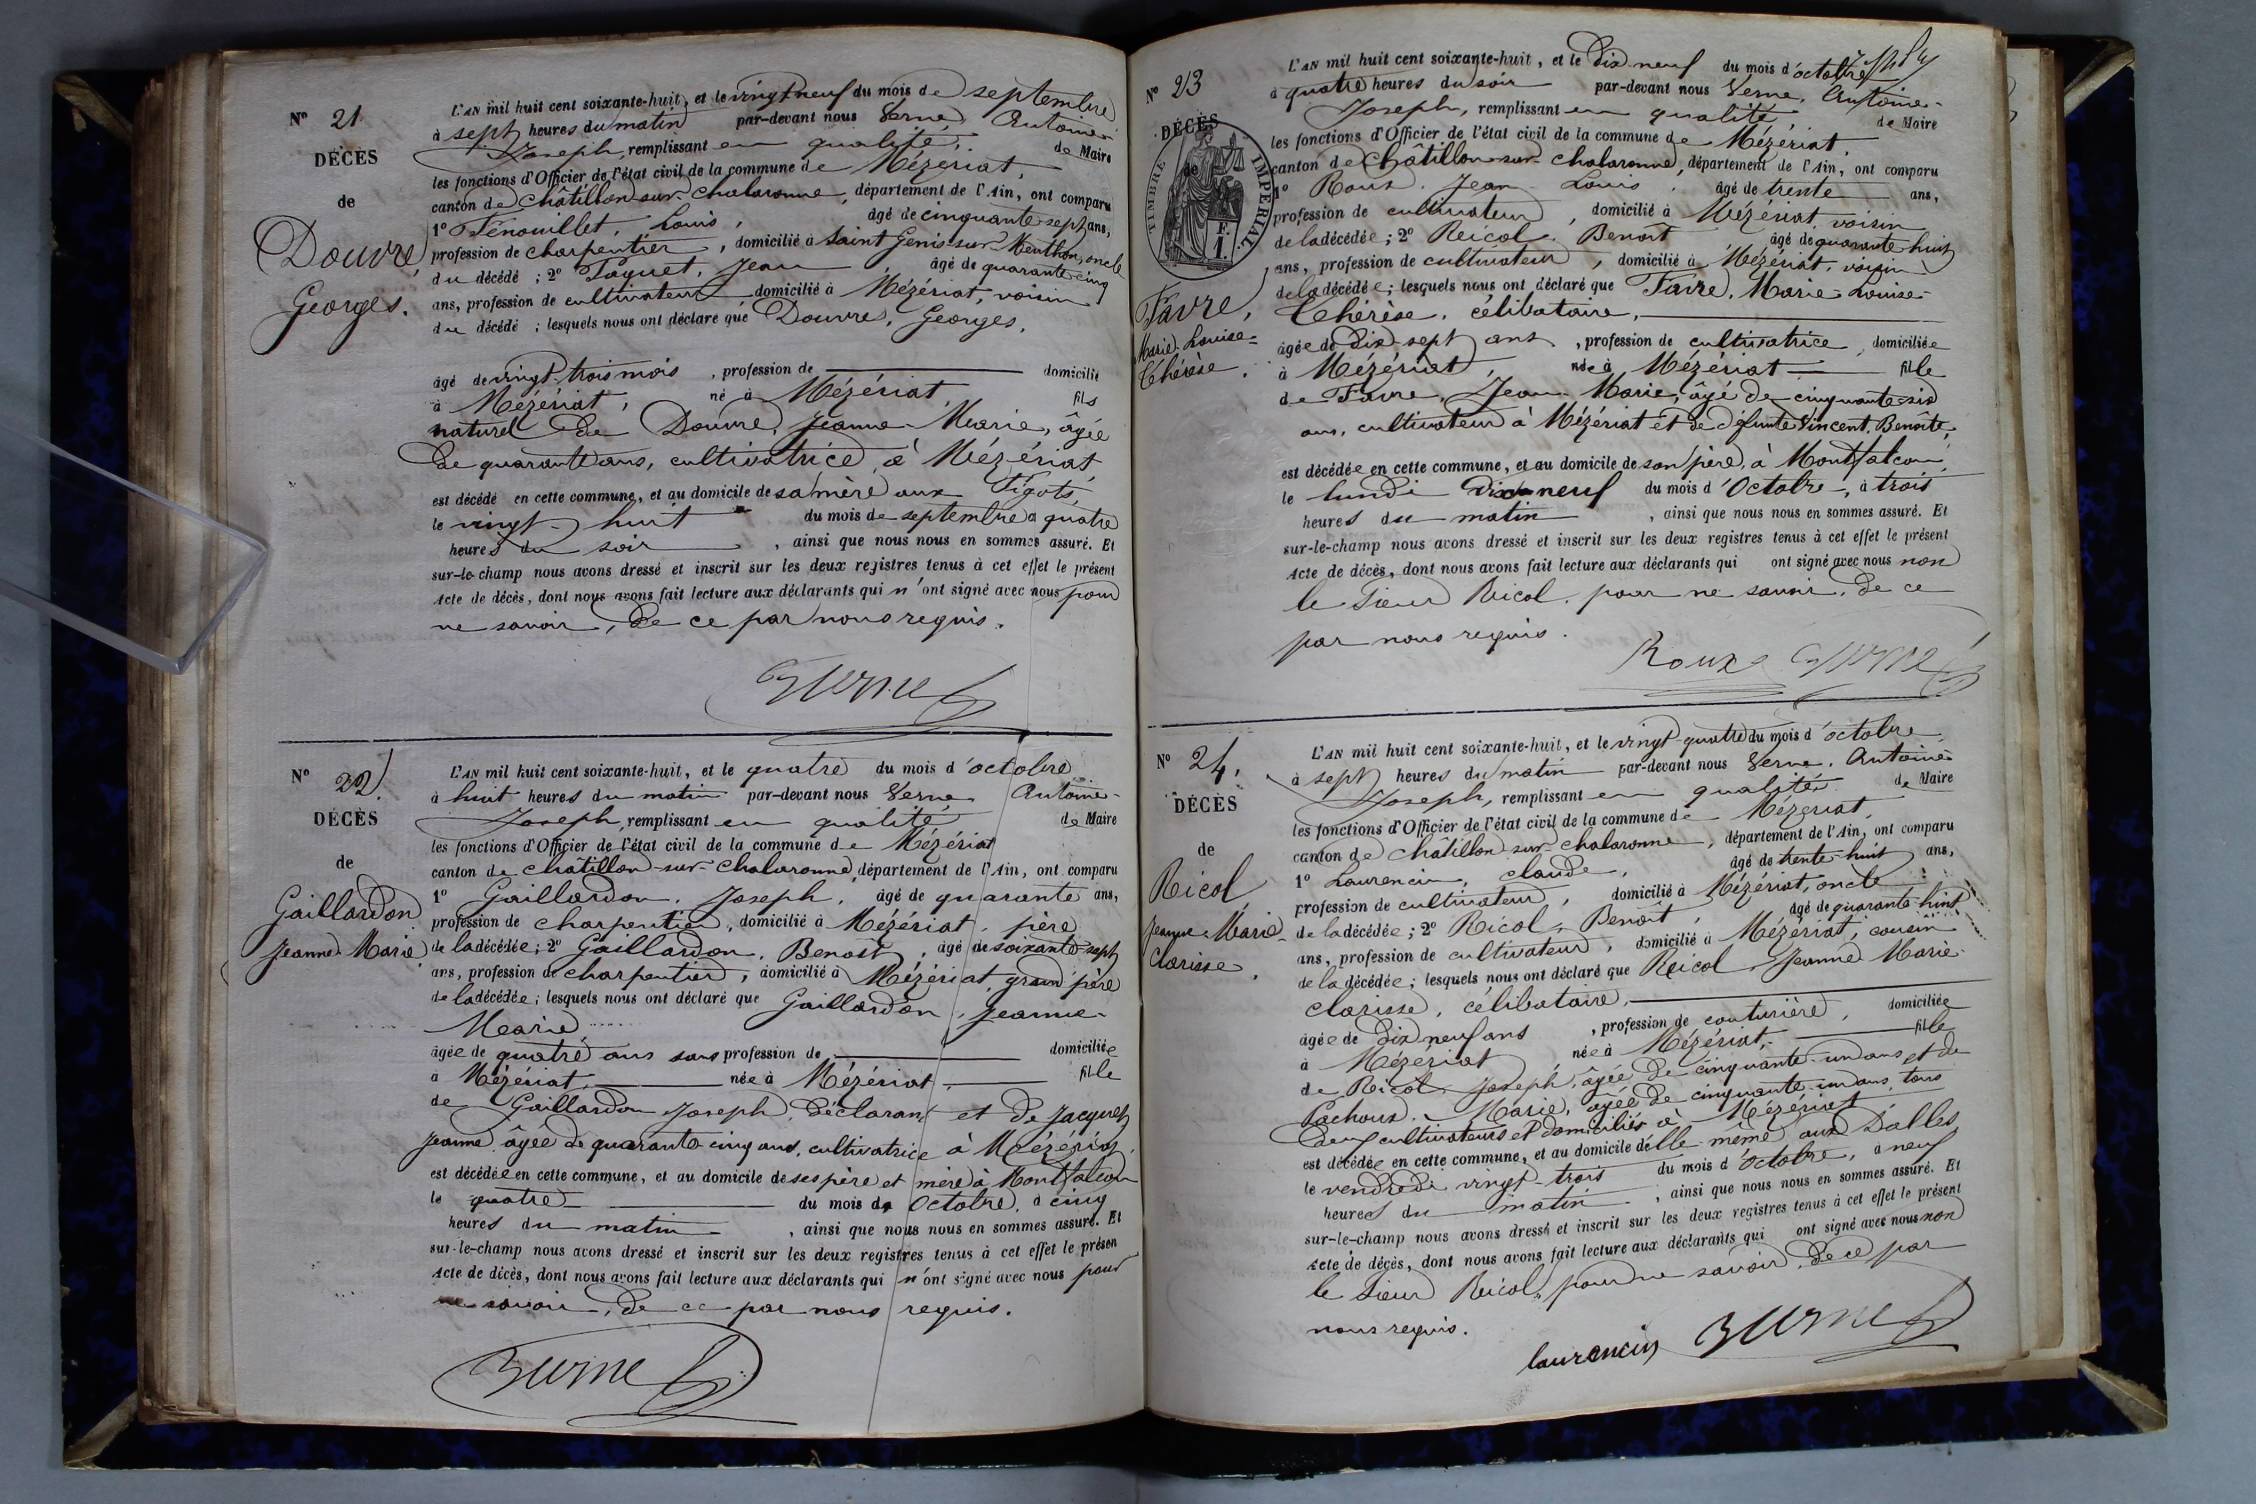 Nº 21
DÉCÈS
de
Douvre,
Georges.
L'AN mil huit cent soixante-huit, et le vingt neuf du mois de septembre
à sept heures du matin par-devant nous Verne, Antoine-
Joseph, remplissant en qualité, de Maire
les fonctions d'Officier de l'état civil de la commune de Mézériat,
canton de Châtillon-sur-Chalaronne, département de l'Ain, ont comparu
1º Fenouillet, Louis, âgé de cinquante-sept ans,
profession de charpentier, domicilié à Saint Genis-sur-Menthon, oncle
du décédé ; 2º Paquet, Jean, âgé de quarante-cinq
ans, profession de cultivateur domicilié à Mézériat, voisin
du décédé ; lesquels nous ont déclaré que Douvre, Georges,
âgé de vingt-trois mois, profession de domicilié
à Mézériat, né à Mézériat, fils
naturel de Douvre, Jeanne-Marie, âgée
de quarante ans, cultivatrice à Mézériat
est décédé en cette commune, et au domicile de sa mère aux Figots,
le vingt-huit du mois de septembre à quatre
heures du soir, ainsi que nous nous en sommes assuré. Et
sur-le-champ nous avons dressé et inscrit sur les deux registres tenus à cet effet le présent
Acte de décès, dont nous avons fait lecture aux déclarants qui n'ont signé avec nous pour
ne savoir, de ce par nous requis.
Verne
Nº 22
DÉCÈS
de
Gaillardon
Jeanne-Marie
L'AN mil huit cent soixante-huit, et le quatre du mois d'octobre
à huit heures du matin par-devant nous Verne Antoine-
Joseph, remplissant en qualité de Maire
les fonctions d'Officier de l'état civil de la commune de Mézériat
canton de Châtillon-sur-Chalaronne, département de l'Ain, ont comparu
1º Gaillardon, Joseph, âgé de quarante ans,
profession de charpentier, domicilié à Mézériat, père
de la décédée ; 2º Gaillardon, Benoît, âgé de soixante-sept
ans, profession de charpentier, domicilié à Mézériat, grand père
de la décédée ; lesquels nous ont déclaré que Gaillardon, Jeanne-
Marie
âgée de quatre ans sans profession de domiciliée
à Mézériat, née à Mézériat, fille
de Gaillardon Joseph, déclarant et de Jacquet,
Jeanne, âgée de quarante-cinq ans, cultivatrice à Mézériat,
est décédée en cette commune, et au domicile de ses père et mère à Montfalcon
le quatre du mois de Octobre, à cinq
heures du matin, ainsi que nous nous en sommes assuré. Et
sur-le-champ nous avons dressé et inscrit sur les deux registres tenus à cet effet le présen
Acte de décès, dont nous avons fait lecture aux déclarants qui n'ont signé avec nous pour
ne savoir, de ce par nous requis.
Verne
Nº 23
DÉCÈS
de
TIMBRE IMPÉRIAL
1 F.
Favre,
Marie-Louise-
Thérèse.
L'AN mil huit cent soixante-huit, et le Dix-neuf du mois d'octobre
à quatre heures du soir par-devant nous Verne, Antoine-
Joseph, remplissant en qualité de Maire
les fonctions d'Officier de l'état civil de la commune de Mézériat,
canton de Châtillon-sur-Chalaronne, département de l'Ain, ont comparu
1º Roux, Jean Louis, âgé de trente ans,
profession de cultivateur, domicilié à Mézériat, voisin
de la décédée ; 2º Ricol, Benoît âgé de quarante-huit
ans, profession de cultivateur, domicilié à Mézériat, voisin
de la décédée ; lesquels nous ont déclaré que Favre, Marie-Louise-
Thérèse, célibataire,
âgée de dix-sept ans, profession de cultivatrice domiciliée
à Mézériat, née à Mézériat fille
de Favre, Jean-Marie, âgé de cinquante-six
ans, cultivateur à Mézériat et de défunte Vincent, Benoîte,
est décédée en cette commune, et au domicile de son père, à Montfalcon,
le lundi dix-neuf du mois d'Octobre, à trois
heures du matin, ainsi que nous nous en sommes assuré. Et
sur-le-champ nous avons dressé et inscrit sur les deux registres tenus à cet effet le présent
Acte de décès, dont nous avons fait lecture aux déclarants qui ont signé avec nous non
le Sieur Ricol, pour ne savoir, de ce
par nous requis.
Roux Verne
Nº 24.
DÉCÈS
de
Ricol,
Jeanne-Marie-
Clarisse.
L'AN mil huit cent soixante-huit, et le vingt-quatre du mois d'octobre
à sept heures du matin par-devant nous Verne, Antoine
Joseph, remplissant en qualité de Maire
les fonctions d'Officier de l'état civil de la commune de Mézeriat,
canton de Châtillon sur Chalaronne, département de l'Ain, ont comparu
1º Laurencin, Claude, âgé de trente-huit ans,
profession de cultivateur, domicilié à Mézériat, oncle
de la décédée ; 2º Ricol, Benoît, âgé de quarante-huit
ans, profession de cultivateur, domicilié à Mézériat, cousin
de la décédée ; lesquels nous ont déclaré que Ricol, Jeanne Marie-
Clarisse, célibataire,
âgée de dix neuf ans, profession de couturière, domiciliée
à Mézeriat née à Mézériat, fille
de Ricol, Joseph, âgée de cinquante-un ans et de
Pachoux, Marie, âgée de cinquante-un ans, tous
deux cultivateurs et domiciliés à Mézériat
est décédée en cette commune, et au domicile d'elle-même aux Dalles
le vendredi vingt-trois du mois d'Octobre, à neuf
heures du matin, ainsi que nous nous en sommes assuré. Et
sur-le-champ nous avons dressé et inscrit sur les deux registres tenus à cet effet le présent
Acte de décès, dont nous avons fait lecture aux déclarants qui ont signé avec nous non
le Sieur Ricol, pour ne savoir, de ce par
nous requis.
laurencin Verne